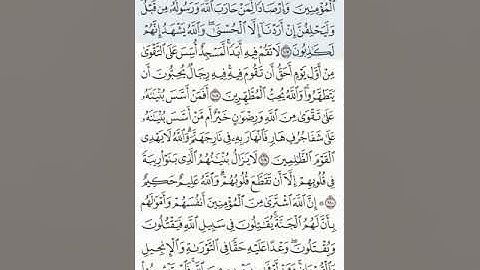 ٱلۡمُؤۡمِنِينَ وَإِرۡصَادٗا لِّمَنۡ حَارَبَ ٱللَّهَ وَرَسُولَهُۥ مِن قَبۡلُۚ
وَلَيَحۡلِفُنَّ إِنۡ أَرَدۡنَآ إِلَّا ٱلۡحُسۡنَىٰۖ وَٱللَّهُ يَشۡهَدُ إِنَّهُمۡ
لَكَٰذِبُونَ ١٠٧ لَا تَقُمۡ فِيهِ أَبَدٗاۚ لَّمَسۡجِدٌ أُسِّسَ عَلَى ٱلتَّقۡوَىٰ
مِنۡ أَوَّلِ يَوۡمٍ أَحَقُّ أَن تَقُومَ فِيهِۚ فِيهِ رِجَالٞ يُحِبُّونَ أَن
يَتَطَهَّرُواْۚ وَٱللَّهُ يُحِبُّ ٱلۡمُطَّهِّرِينَ ١٠٨ أَفَمَنۡ أَسَّسَ بُنۡيَٰنَهُۥ
عَلَىٰ تَقۡوَىٰ مِنَ ٱللَّهِ وَرِضۡوَٰنٍ خَيۡرٌ أَم مَّنۡ أَسَّسَ بُنۡيَٰنَهُۥ
عَلَىٰ شَفَا جُرُفٍ هَارٖ فَٱنۡهَارَ بِهِۦ فِي نَارِ جَهَنَّمَۗ وَٱللَّهُ لَا يَهۡدِي
ٱلۡقَوۡمَ ٱلظَّٰلِمِينَ ١٠٩ لَا يَزَالُ بُنۡيَٰنُهُمُ ٱلَّذِي بَنَوۡاْ رِيبَةٗ
فِي قُلُوبِهِمۡ إِلَّآ أَن تَقَطَّعَ قُلُوبُهُمۡۗ وَٱللَّهُ عَلِيمٌ حَكِيمٌ
١١٠ إِنَّ ٱللَّهَ ٱشۡتَرَىٰ مِنَ ٱلۡمُؤۡمِنِينَ أَنفُسَهُمۡ وَأَمۡوَٰلَهُم
بِأَنَّ لَهُمُ ٱلۡجَنَّةَۚ يُقَٰتِلُونَ فِي سَبِيلِ ٱللَّهِ فَيَقۡتُلُونَ
وَيُقۡتَلُونَۖ وَعۡدًا عَلَيۡهِ حَقّٗا فِي ٱلتَّوۡرَىٰةِ وَٱلۡإِنجِيلِ